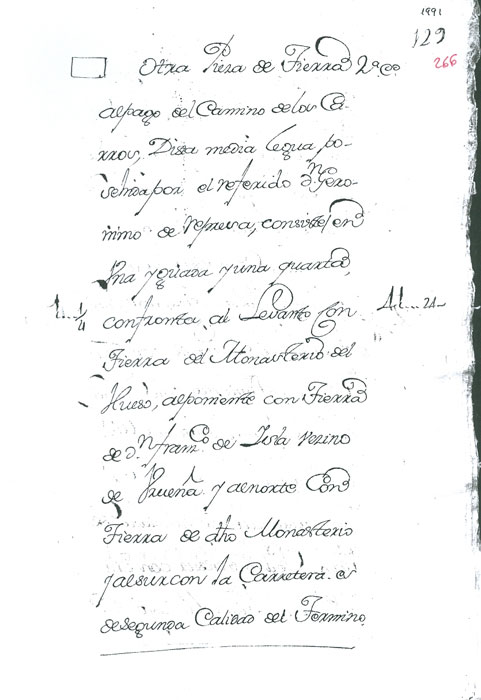 1991
129
266
Otra Pieza de Tierra
al pago del Camino de los Ca-
rros, Dista media legua po-
sehida por el referido Dn Gero-
nimo de
Una yguada y una quarta,
1..1/4
confronta al Levante Con
Tierra del Monasterio del
Hueso, al poniente con Tierra
de Dn Franco de Isla vezino
de y al norte Con
Tierra de dho Monasterio
y al sur con la Carretera es
de segunda Calidad del Termino